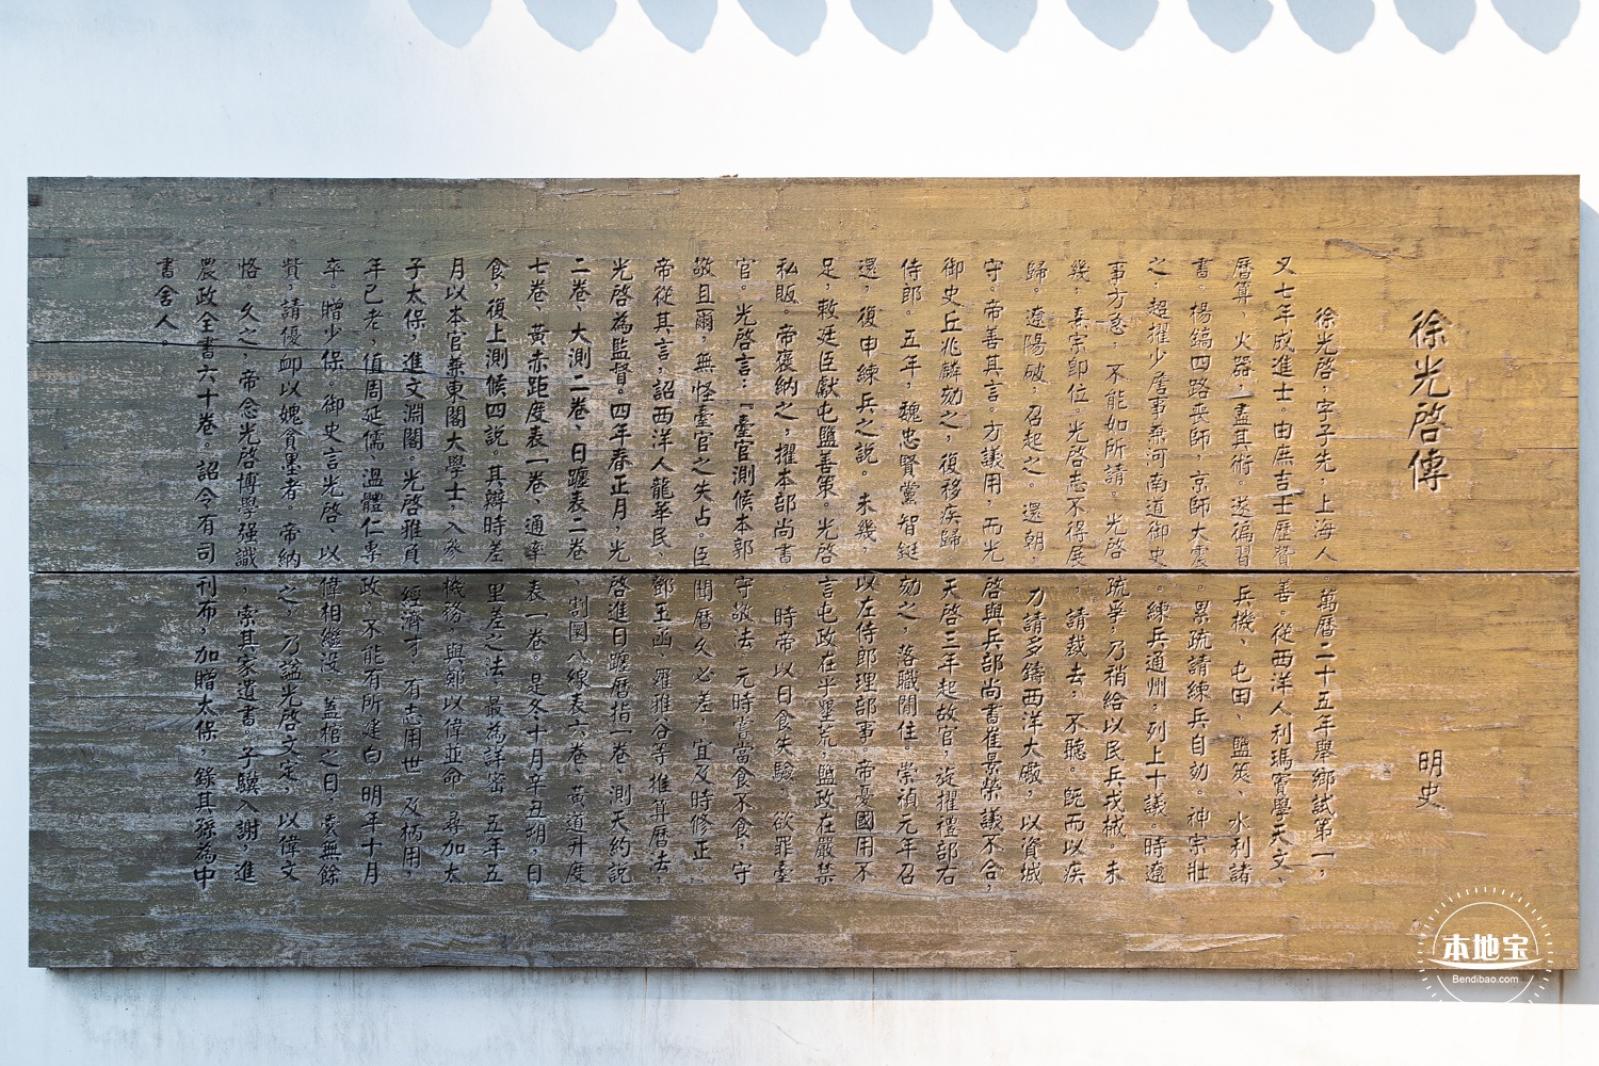 徐光啓傳 明史
徐光啓,字子先,上海人 萬曆二十五年舉鄉試第一,
又七年成進士。由庶吉士歷贊善。從西洋人利瑪竇學天文、
曆算、火器,盡其術。遂徧習兵機、屯田、鹽筴、水利諸
書。楊鎬四路喪師,京師大震。累疏請練兵自効。神宗壯
之,超擢少詹事兼河南道御史。練兵通州,列上十議。時遼
事方急,不能如所請。光啓疏爭,乃稍給以民兵戎械。未
幾,熹宗即位。光啓志不得展,請裁去,不聽。既而以疾
歸。遼陽破,召起之。還朝,力請多鑄西洋大礮,以資城
守。帝善其言。方議用,而光啓與兵部尚書崔景榮議不合,
御史丘兆麟劾之,復移疾歸 天啓三年起故官,旋擢禮部右
侍郎。五年,魏忠賢黨智鋌劾之,落職閒住。崇禎元年召
還,復申練兵之説。未幾,以左侍郎理部事。帝憂國用不
足,敕廷臣獻屯鹽善策。光啓言屯政在乎墾荒,鹽政在嚴禁
私販。帝褒納之,擢本部尚書。時帝以日食失驗,欲罪臺
官。光啓言:『臺官測候本郭守敬法。元時嘗當食不食,守
敬且爾,無怪臺官之失占。臣聞曆久必差,宜及時修正。
帝從其言,詔西洋人龍華民、鄧玉函、羅雅谷等推算曆法,
光啓為監督。四年春正月,光啓進日躔曆指一卷、測天約説
二卷、大測二卷、日躔表二卷、割圜八線表六卷、黃道升度
七卷、黃赤距度表一卷、通率表一卷。是冬十月辛丑朔,日
食,復上測候四説。其辯時差里差之法,最為詳密。五年五
月以本官兼東閣大學士,入參機務,與鄭以偉並命。尋加太
子太保,進文淵閣。光啓雅負經濟才,有志用世。及柄用,
年已老,值周延儒、溫體仁專政,不能有所建白。明年十月
卒。贈少保。御史言光啓、以偉相繼沒,蓋棺之日,囊無餘
貲,請優卹以媿貪墨者。帝納之,乃謚光啓文定,以偉文
恪 久之,帝念光啓博學强識,索其家遺書。子驥入謝,進
農政全書六十卷。詔令有司刊布,加贈太保,錄其孫為中
書舍人。
本地宝
Bendibao.com